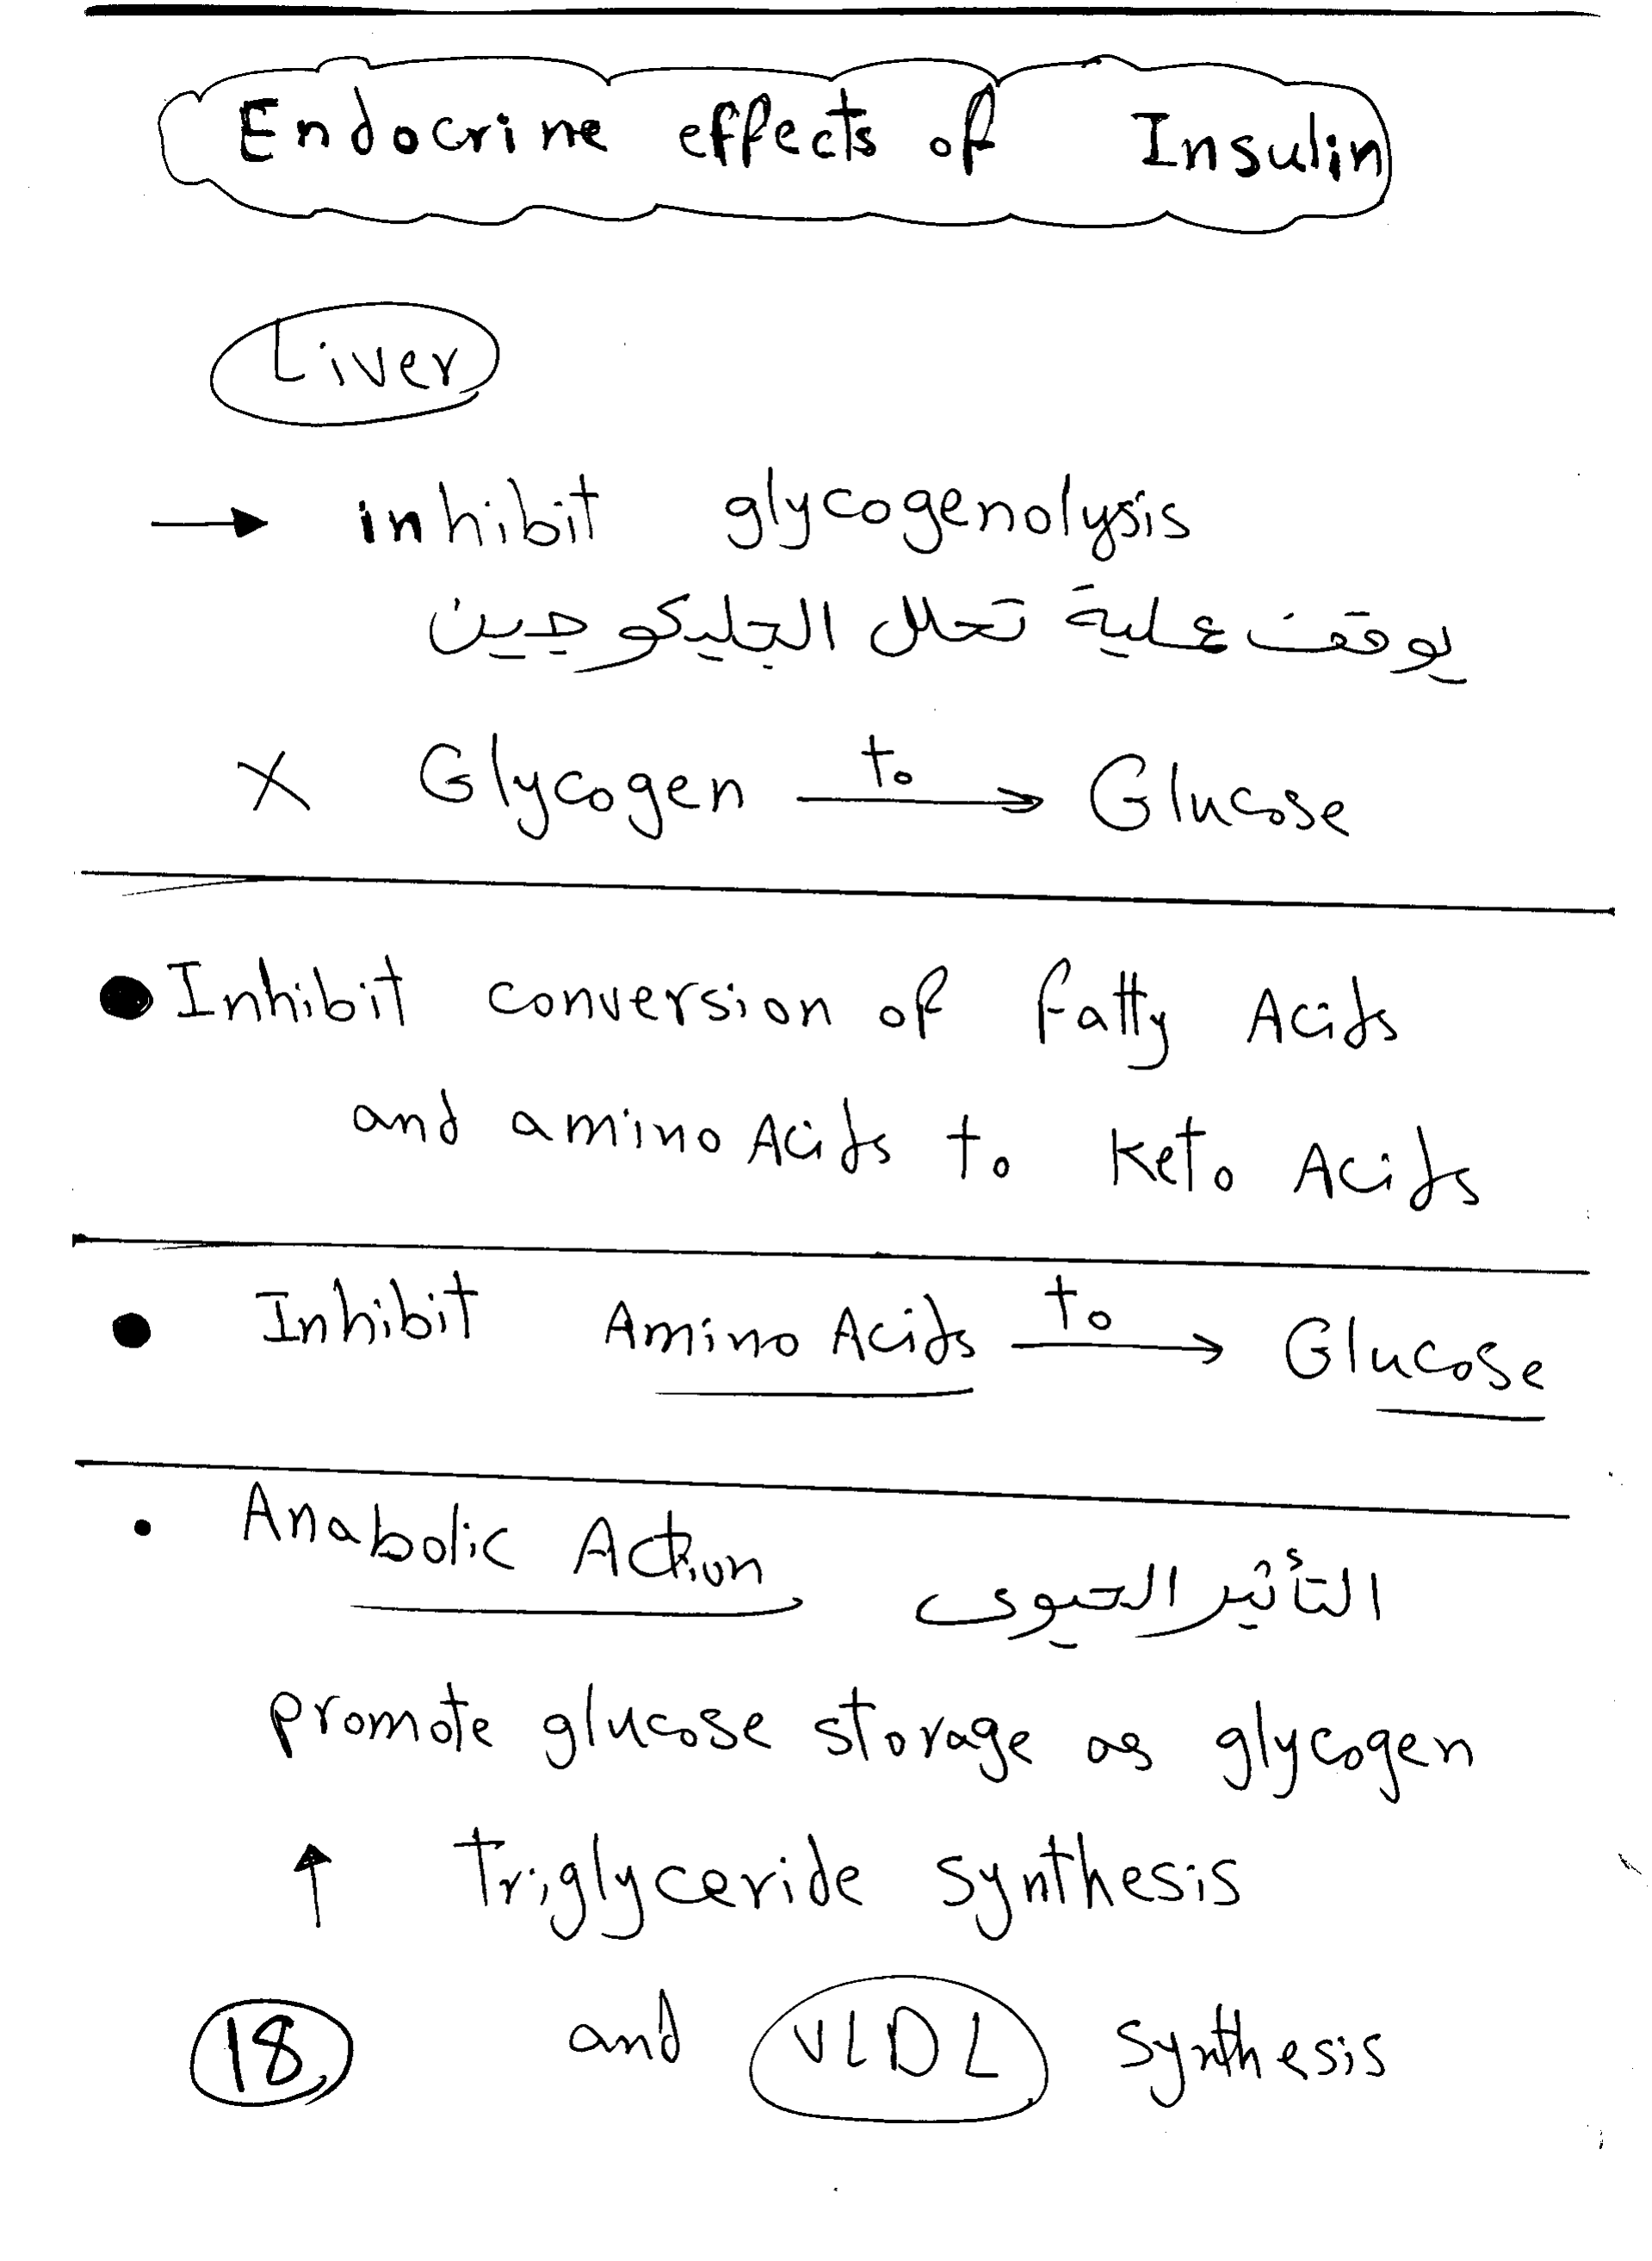 Endocrine effects of Insulin
Liver
→ inhibit glycogenolysis
يوقف عملية تحلل الجليكوجين
X Glycogen to → Glucose
● Inhibit conversion of fatty Acids
and amino Acids to Keto Acids
● Inhibit Amino Acids to → Glucose
• Anabolic Action التأثير الحيوى
promote glucose storage as glycogen
↑ Triglyceride synthesis
and VLDL synthesis
18